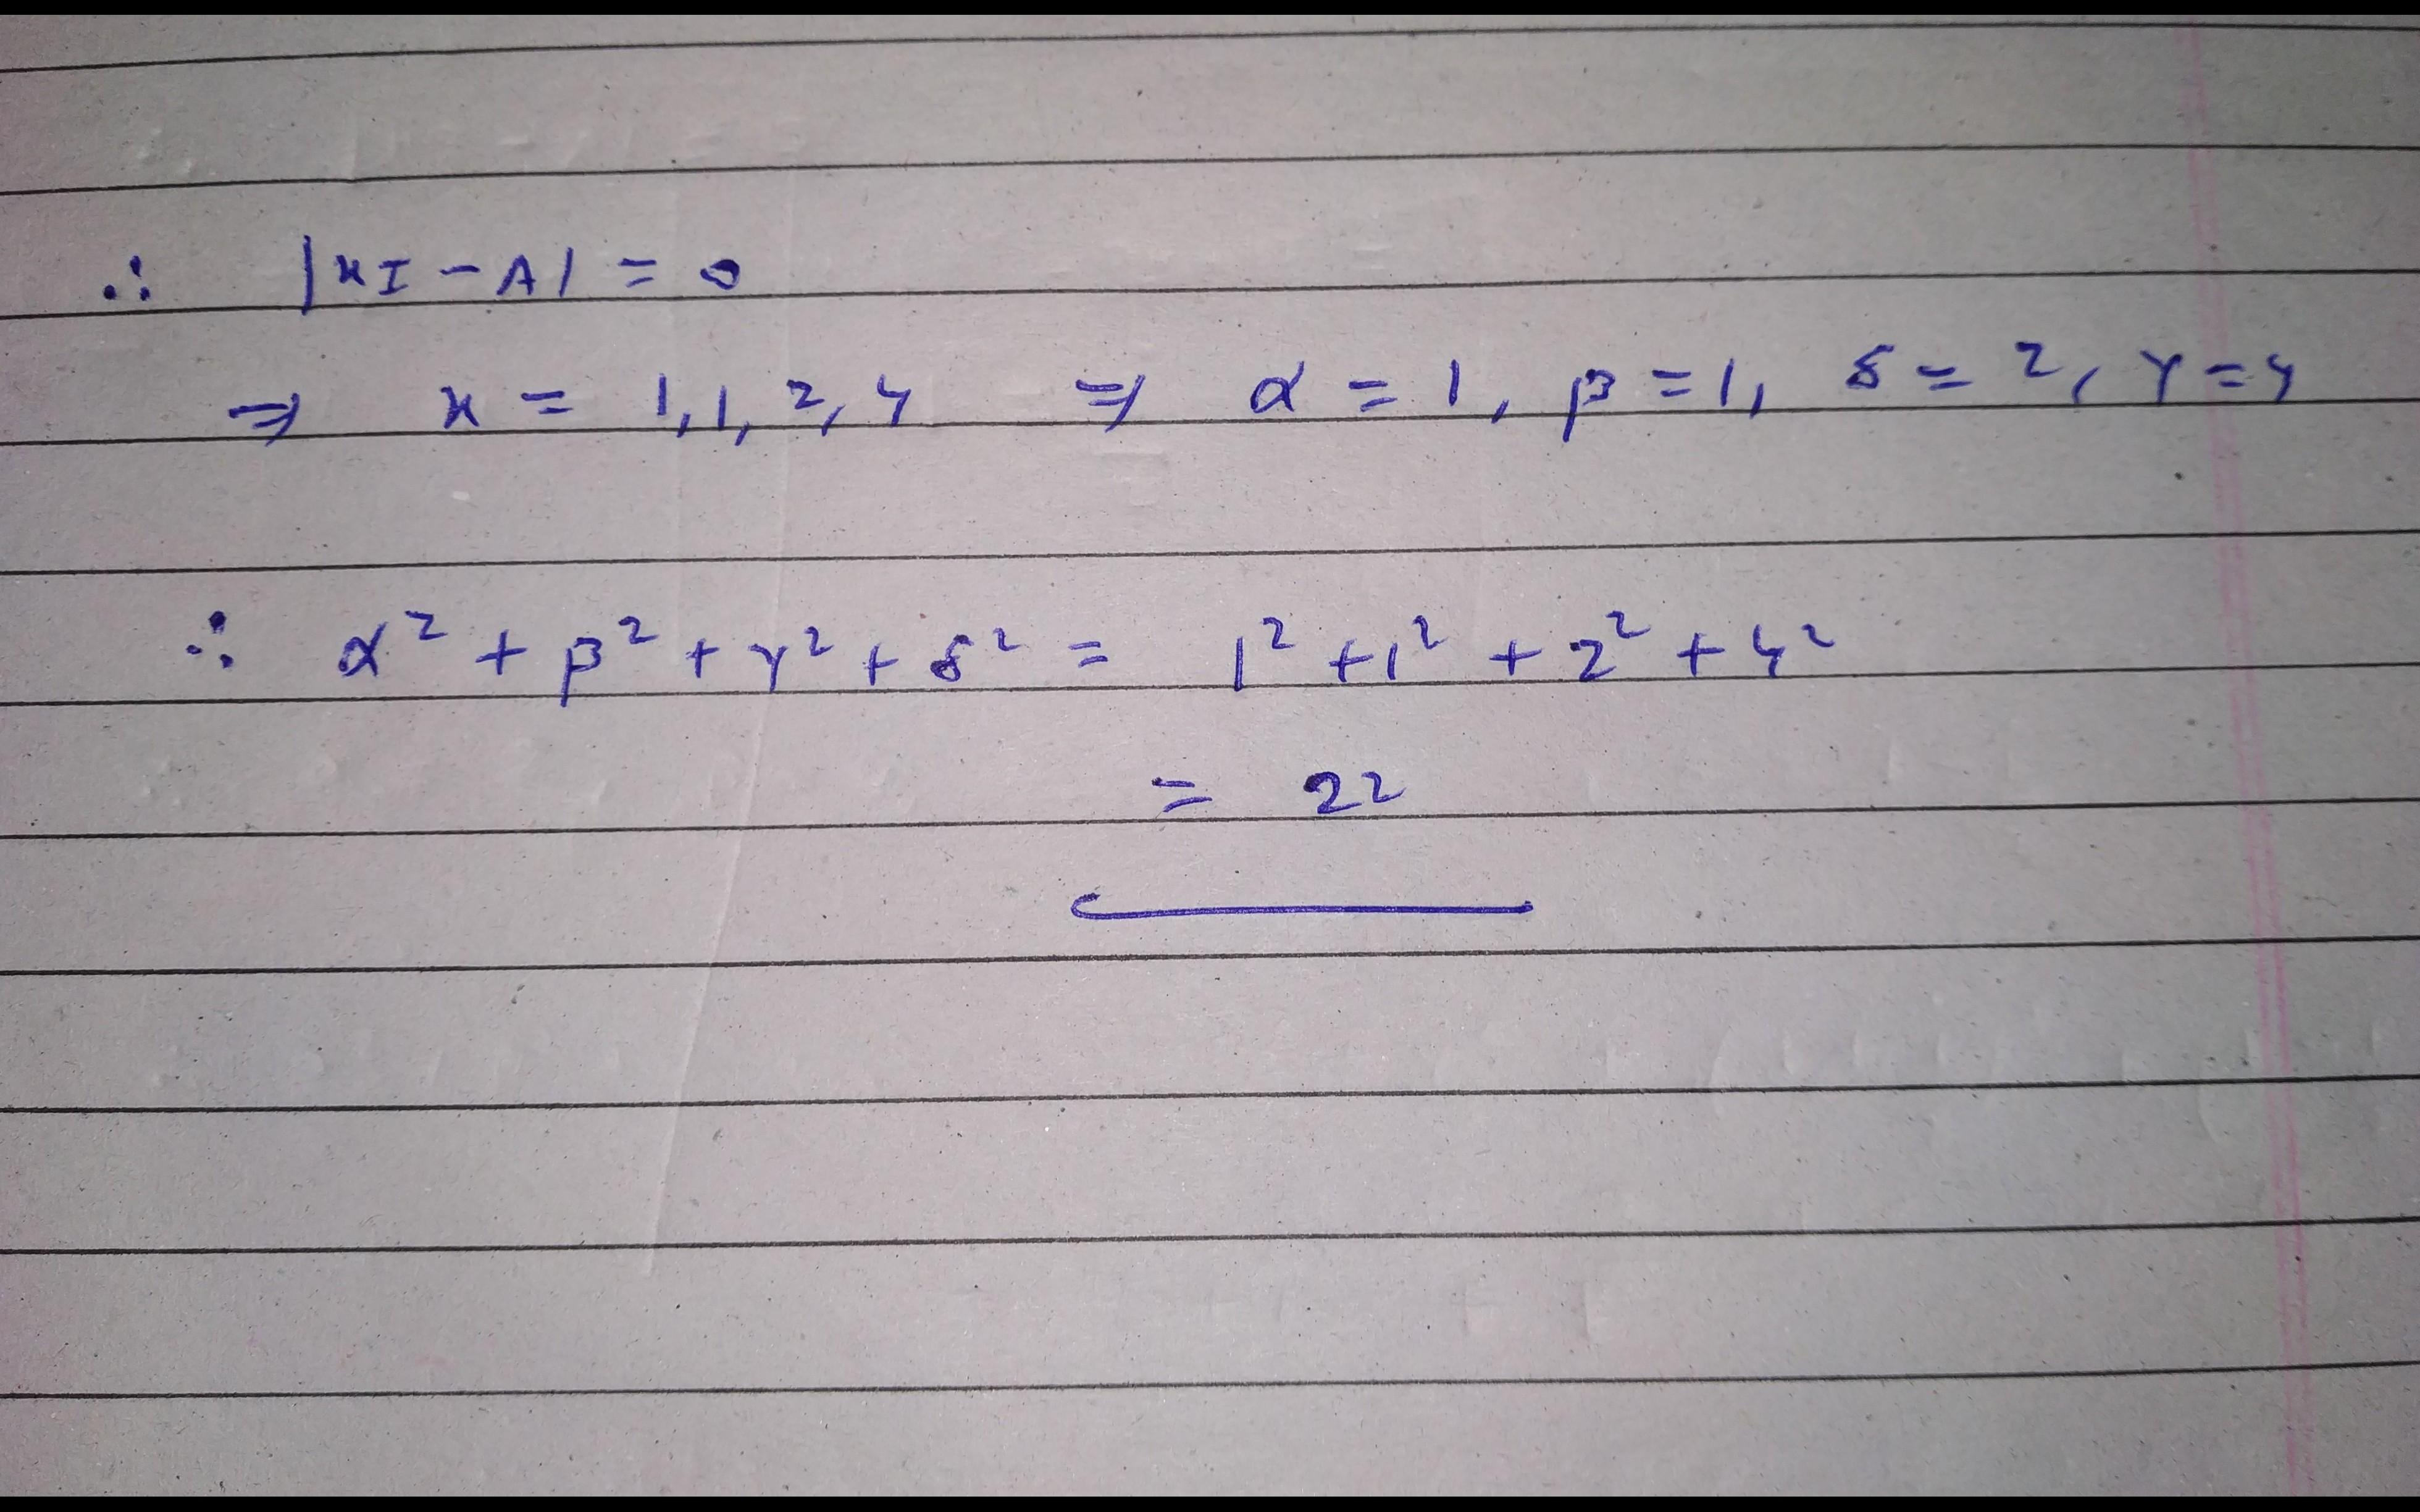 ∴ |xI - A| = 0
⇒ x = 1, 1, 2, 4 ⇒ α = 1, β = 1, δ = 2, γ = 4
∴ α² + β² + γ² + δ² = 1² + 1² + 2² + 4²
= 22